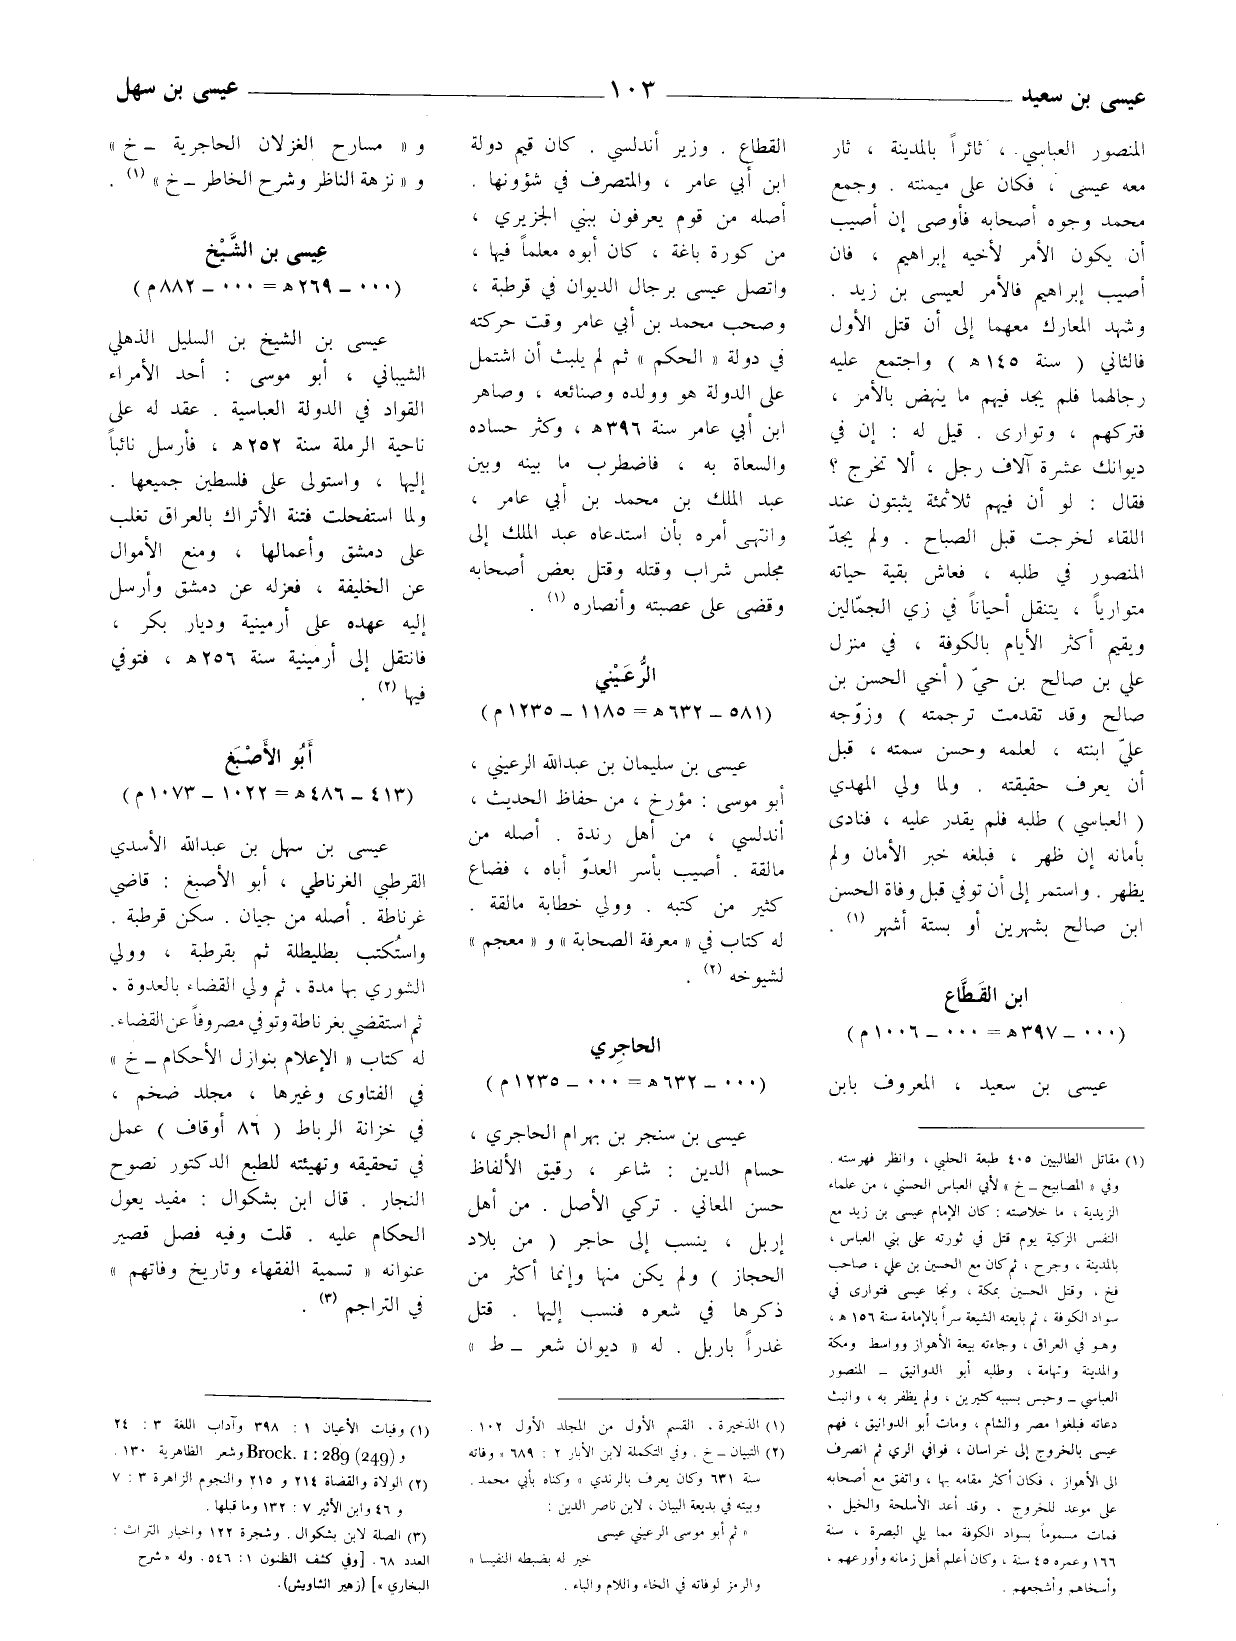 عيسى بن سعيد ١٠٣ عيسى بن سهل
المنصور العباسي ، ثائراً بالمدينة ، ثار
معه عيسى ، فكان على ميمنته . وجمع
محمد وجوه أصحابه فأوصى إن أصيب
أن يكون الأمر لأخيه إبراهيم ، فان
أصيب إبراهيم فالأمر لعيسى بن زيد .
وشهد المعارك معهما إلى أن قتل الأول
فالثاني ( سنة ١٤٥ هـ ) واجتمع عليه
رجالهما فلم يجد فيهم ما ينهض بالأمر ،
فتركهم ، وتوارى . قيل له : إن في
ديوانك عشرة آلاف رجل ، ألا تخرج ؟
فقال : لو أن فيهم ثلاثمئة يثبتون عند
اللقاء لخرجت قبل الصباح . ولم يجدّ
المنصور في طلبه ، فعاش بقية حياته
متوارياً ، يتنقل أحياناً في زي الجمّالين
ويقيم أكثر الأيام بالكوفة ، في منزل
علي بن صالح بن حيّ ( أخي الحسن بن
صالح وقد تقدمت ترجمته ) وزوّجه
عليّ ابنته ، لعلمه وحسن سمته ، قبل
أن يعرف حقيقته . ولما ولي المهدي
( العباسي ) طلبه فلم يقدر عليه ، فنادى
بأمانه إن ظهر ، فبلغه خبر الأمان ولم
يظهر . واستمر إلى أن توفي قبل وفاة الحسن
ابن صالح بشهرين أو بستة أشهر (١) .
ابن القَطَّاع
(٠٠٠ – ٣٩٧ هـ = ٠٠٠ – ١٠٠٦ م)
عيسى بن سعيد ، المعروف بابن
(١) مقاتل الطالبيين ٤٠٥ طبعة الحلبي ، وانظر فهرسته .
وفي « المصابيح – خ » لأبي العباس الحسني ، من علماء
الزيدية ، ما خلاصته : كان الإمام عيسى بن زيد مع
النفس الزكية يوم قتل في ثورته على بني العباس ،
بالمدينة ، وجرح ، ثم كان مع الحسين بن علي ، صاحب
فخ ، وقتل الحسين بمكة ، ونجا عيسى فتوارى في
سواد الكوفة ، ثم بايعته الشيعة سراً بالإمامة سنة ١٥٦ هـ ،
وهو في العراق ، وجاءته بيعة الأهواز وواسط ومكة
والمدينة وتهامة ، وطلبه أبو الدوانيق – المنصور
العباسي – وحبس بسببه كثيرين ، ولم يظفر به ، وانبث
دعاته فبلغوا مصر والشام ، ومات أبو الدوانيق ، فهم
عيسى بالخروج إلى خراسان ، فوافي الري ثم انصرف
الى الأهواز ، فكان أكثر مقامه بها ، واتفق مع أصحابه
على موعد للخروج . وقد أعد الأسلحة والخيل .
فمات مسموماً بسواد الكوفة مما يلي البصرة ، سنة
١٦٦ وعمره ٤٥ سنة ، وكان أعلم أهل زمانه وأورعهم ،
وأسخاهم وأشجعهم .
القطاع . وزير أندلسي . كان قيم دولة
ابن أبي عامر ، والمتصرف في شؤونها .
أصله من قوم يعرفون ببني الجزيري ،
من كورة باغة ، كان أبوه معلماً فيها ،
واتصل عيسى برجال الديوان في قرطبة ،
وصحب محمد بن أبي عامر وقت حركته
في دولة « الحكم » ثم لم يلبث أن اشتمل
على الدولة هو وولده وصنائعه ، وصاهر
ابن أبي عامر سنة ٣٩٦ هـ ، وكثر حساده
والسعاة به ، فاضطرب ما بينه وبين
عبد الملك بن محمد بن أبي عامر ،
وانتهى أمره بأن استدعاه عبد الملك إلى
مجلس شراب وقتله وقتل بعض أصحابه
وقضى على عصبته وأنصاره (١) .
الرُّعَيْني
(٥٨١ – ٦٣٢ هـ = ١١٨٥ – ١٢٣٥ م)
عيسى بن سليمان بن عبدالله الرعيني ،
أبو موسى : مؤرخ ، من حفاظ الحديث ،
أندلسي ، من أهل رندة . أصله من
مالقة . أصيب بأسر العدوّ أباه ، فضاع
كثير من كتبه . وولي خطابة مالقة .
له كتاب في « معرفة الصحابة » و « معجم »
لشيوخه (٢) .
الحاجِري
(٠٠٠ – ٦٣٢ هـ = ٠٠٠ – ١٢٣٥ م)
عيسى بن سنجر بن بهرام الحاجري ،
حسام الدين : شاعر ، رقيق الألفاظ
حسن المعاني . تركي الأصل . من أهل
إربل ، ينسب إلى حاجر ( من بلاد
الحجاز ) ولم يكن منها وإنما أكثر من
ذكرها في شعره فنسب إليها . قتل
غدراً باربل . له « ديوان شعر – ط »
(١) الذخيرة . القسم الأول من المجلد الأول ١٠٢ .
(٢) التبيان – خ . وفي التكملة لابن الأبار ٢ : ٦٨٩ « وفاته
سنة ٦٣١ وكان يعرف بالرندي » وكناه بأبي محمد .
وبيته في بديعة البيان ، لابن ناصر الدين :
« ثم أبو موسى الرعيني عيسى
خير له بضبطه النفيسا »
والرمز لوفاته في الخاء واللام والباء .
و « مسارح الغزلان الحاجرية – خ »
و « نزهة الناظر وشرح الخاطر – خ » (١) .
عِيسى بن الشَّيْخ
(٠٠٠ – ٢٦٩ هـ = ٠٠٠ – ٨٨٢ م)
عيسى بن الشيخ بن السليل الذهلي
الشيباني ، أبو موسى : أحد الأمراء
القواد في الدولة العباسية . عقد له على
ناحية الرملة سنة ٢٥٢ هـ ، فأرسل نائباً
إليها ، واستولى على فلسطين جميعها .
ولما استفحلت فتنة الأتراك بالعراق تغلب
على دمشق وأعمالها ، ومنع الأموال
عن الخليفة ، فعزله عن دمشق وأرسل
إليه عهده على أرمينية وديار بكر ،
فانتقل إلى أرمينية سنة ٢٥٦ هـ ، فتوفي
فيها (٢) .
أَبُو الأَصْبَغ
(٤١٣ – ٤٨٦ هـ = ١٠٢٢ – ١٠٧٣ م)
عيسى بن سهل بن عبدالله الأسدي
القرطبي الغرناطي ، أبو الأصبغ : قاضي
غرناطة . أصله من جيان . سكن قرطبة .
واستُكتب بطليطلة ثم بقرطبة ، وولي
الشورى بها مدة ، ثم ولي القضاء بالعدوة .
ثم استقضي بغرناطة وتوفي مصروفاً عن القضاء.
له كتاب « الإعلام بنوازل الأحكام – خ »
في الفتاوى وغيرها ، مجلد ضخم ،
في خزانة الرباط ( ٨٦ أوقاف ) عمل
في تحقيقه وتهيئته للطبع الدكتور نصوح
النجار . قال ابن بشكوال : مفيد يعول
الحكام عليه . قلت وفيه فصل قصير
عنوانه « تسمية الفقهاء وتاريخ وفاتهم »
في التراجم (٣) .
(١) وفيات الأعيان ١ : ٣٩٨ وآداب اللغة ٣ : ٢٤
و Brock. 1 : 289 (249) وشعر الظاهرية ١٣٠ .
(٢) الولاة والقضاة ٢١٤ و ٢١٥ والنجوم الزاهرة ٣ : ٧
و ٤٦ وابن الأثير ٧ : ١٣٢ وما قبلها .
(٣) الصلة لابن بشكوال . وشجرة ١٢٢ واخبار التراث :
العدد ٦٨. [وفي كشف الظنون ١ : ٥٤٦. وله «شرح
البخاري »] (زهير الشاويش).